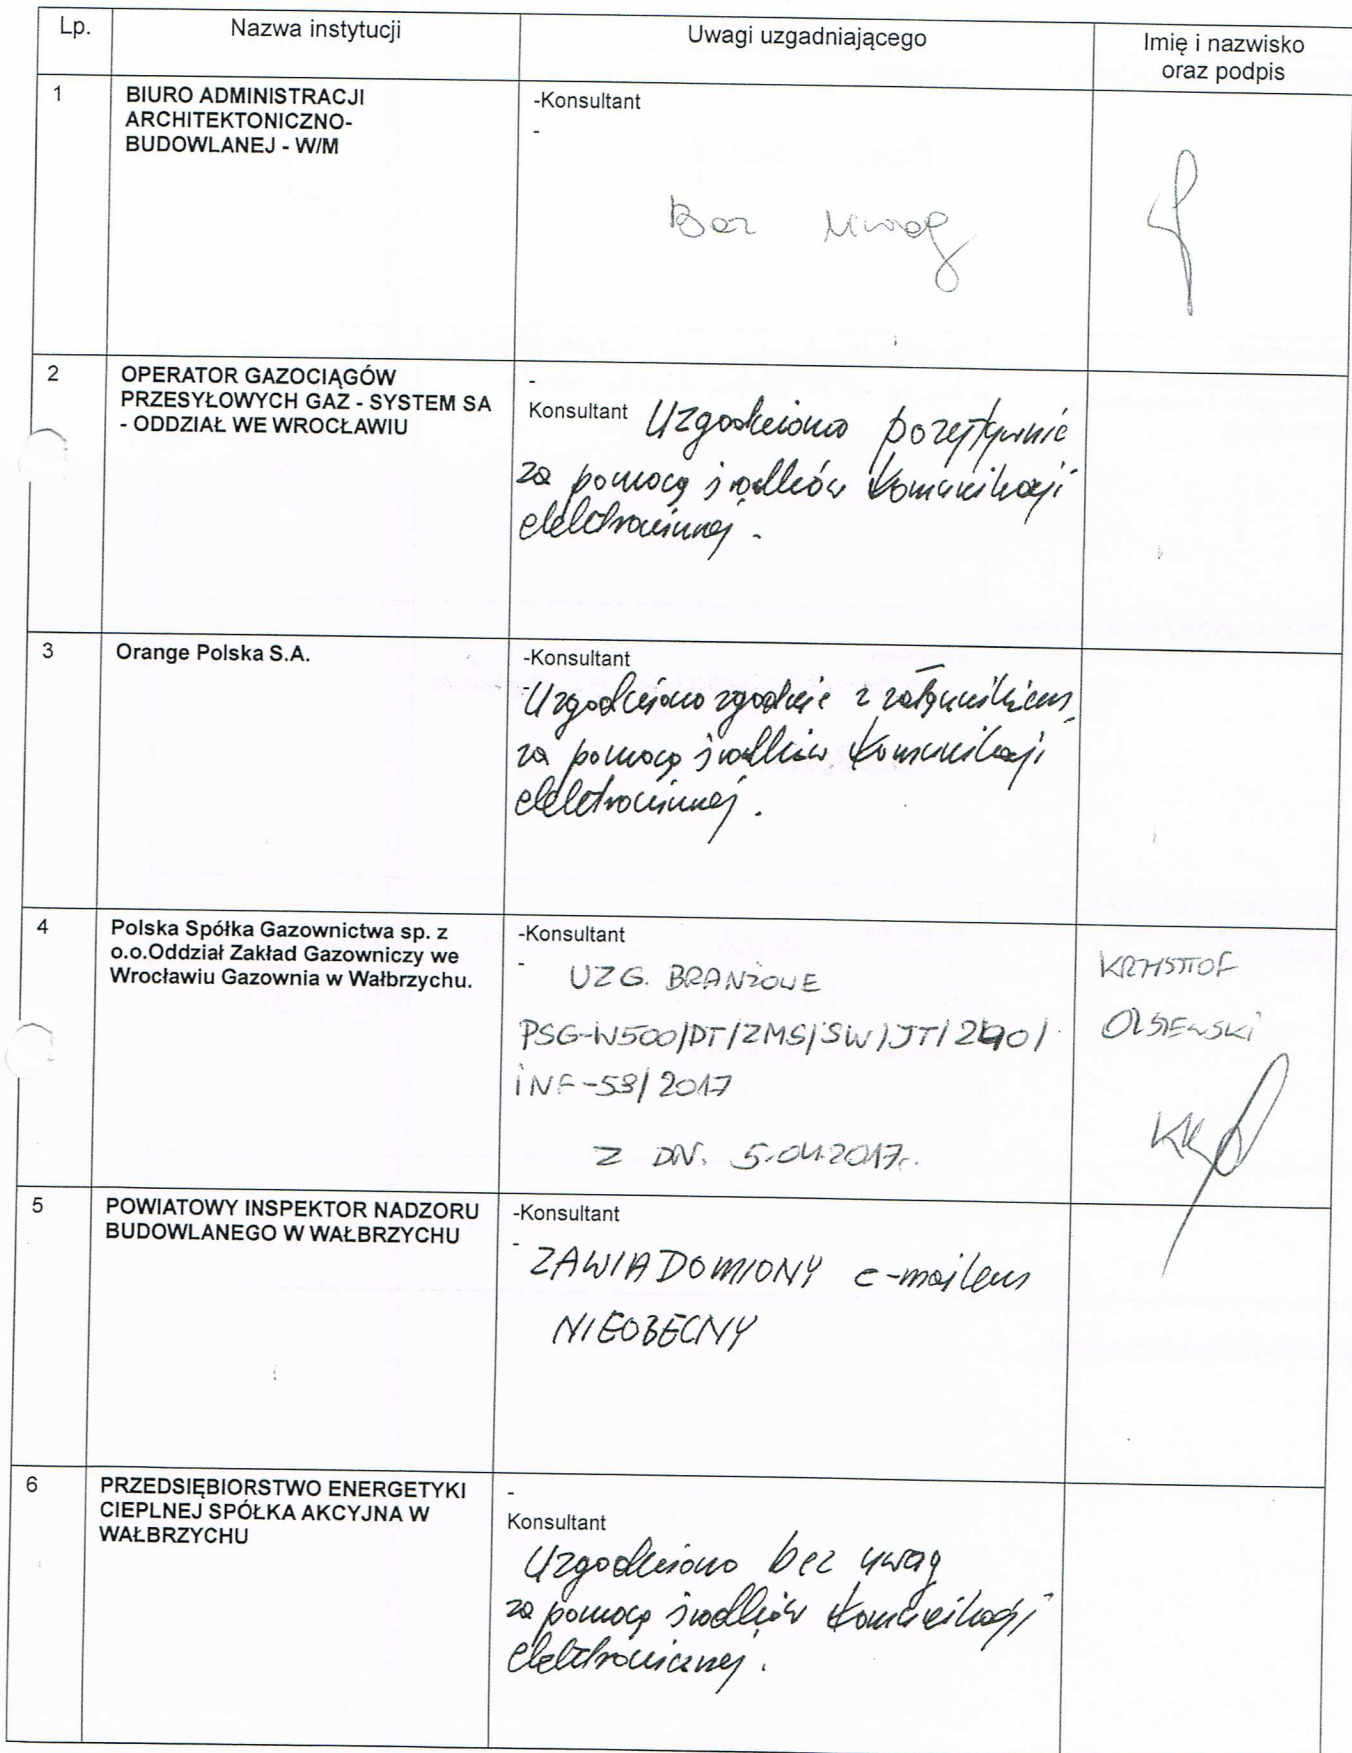 Lp.
Nazwa instytucji
Uwagi uzgadniającego
Imię i nazwisko
oraz podpis
1
BIURO ADMINISTRACJI
ARCHITEKTONICZNO-
BUDOWLANEJ - W/M
-Konsultant
-
Bez uwag
2
OPERATOR GAZOCIĄGÓW
PRZESYŁOWYCH GAZ - SYSTEM SA
- ODDZIAŁ WE WROCŁAWIU
-
Konsultant Uzgodniono pozytywnie
za pomocą środków komunikacji
elektronicznej.
3
Orange Polska S.A.
-Konsultant
-Uzgodniono zgodnie z załącznikiem,
za pomocą środków komunikacji
elektronicznej.
4
Polska Spółka Gazownictwa sp. z
o.o.Oddział Zakład Gazowniczy we
Wrocławiu Gazownia w Wałbrzychu.
-Konsultant
- UZG. BRANŻOWE
PSG-W500/DT/ZMS/SW/JT/240/
INF-58/2017
Z DN. 5.04.2017r.
KRZYSZTOF
OLSZEWSKI
5
POWIATOWY INSPEKTOR NADZORU
BUDOWLANEGO W WAŁBRZYCHU
-Konsultant
- ZAWIADOMIONY e-mailem
NIEOBECNY
6
PRZEDSIĘBIORSTWO ENERGETYKI
CIEPLNEJ SPÓŁKA AKCYJNA W
WAŁBRZYCHU
-
Konsultant
Uzgodniono bez uwag
za pomocą środków komunikacji
elektronicznej.